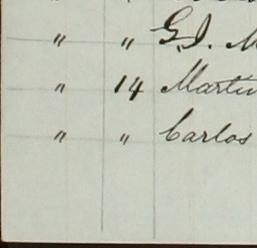 " " G. J. M
" 14 Martin
" " Carlos